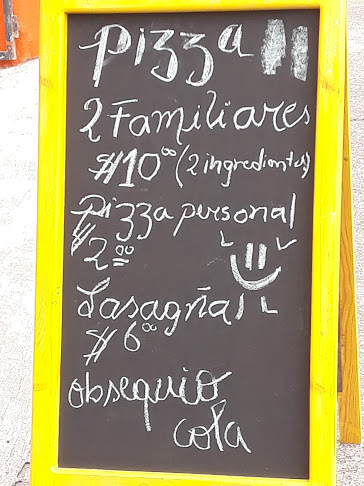 Pizza
2 Familiares
$10⁰⁰ (2 ingredientes)
Pizza personal
$2⁰⁰
Lasagña
$6⁰⁰
obsequio
cola